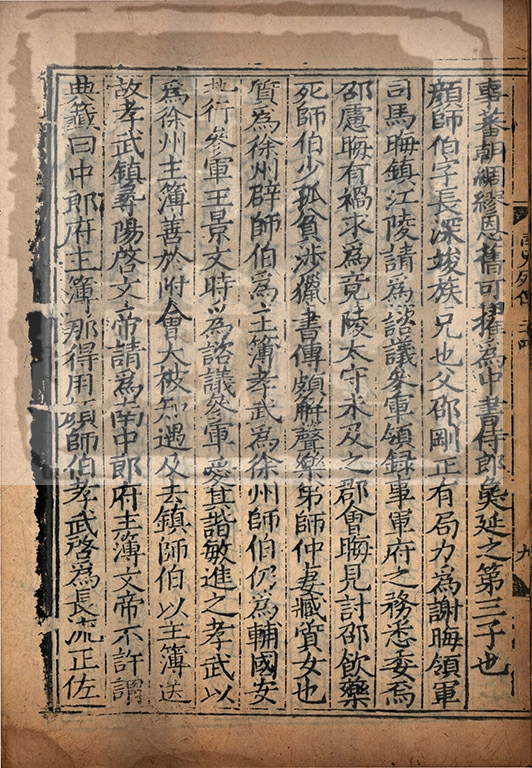 事蕃朝綢繆恩舊可擢為中書侍郎㚟延之第三子也
顔師伯字長深竣族兄也父邵剛正有局力為謝晦領軍
司馬晦鎮江陵請為諮議參軍領録事軍府之務悉委焉
邵慮晦有禍求為竟陵太守未及之郡會晦見討邵飲藥
死師伯少孤貧涉獵書傳頗解聲樂弟師仲妻臧質女也
質為徐州辟師伯為主簿孝武為徐州師伯仍為輔國安
北行參軍王景文時為諮議參軍愛其諧敏進之孝武以
為徐州主簿善於附會大被知遇及去鎮師伯以主簿送
故孝武鎮尋陽啓文帝請為南中郎府主簿文帝不許謂
典籖曰中郎府主簿那得用顔師伯孝武啓為長流正佐